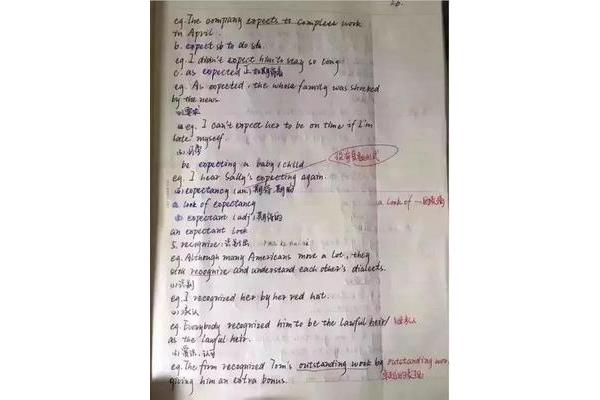 26.
eg. The company expects to complete work
in April.
b. expect sb to do sth.
eg. I didn't expect him to stay so long.
c. as expected 正如期待的
eg. As expected, the whole family was shocked
by the news.
要求
eg. I can't expect her to be on time if I'm
late myself.
be expecting a baby/child
eg. I hear Sally's expecting again.
expectancy (un.) 期待,期望
a look of expectancy a look of
expectant (adj.) 期待的
an expectant look
5. recognize
eg. Although many Americans move a lot, they
still recognize and understand each other's dialects.
eg. I recognized her by her red hat.
承认
eg. Everybody recognized him to be the lawful heir/
as the lawful heir.
eg. The firm recognized Tom's outstanding work by outstanding work
giving him an extra bonus.